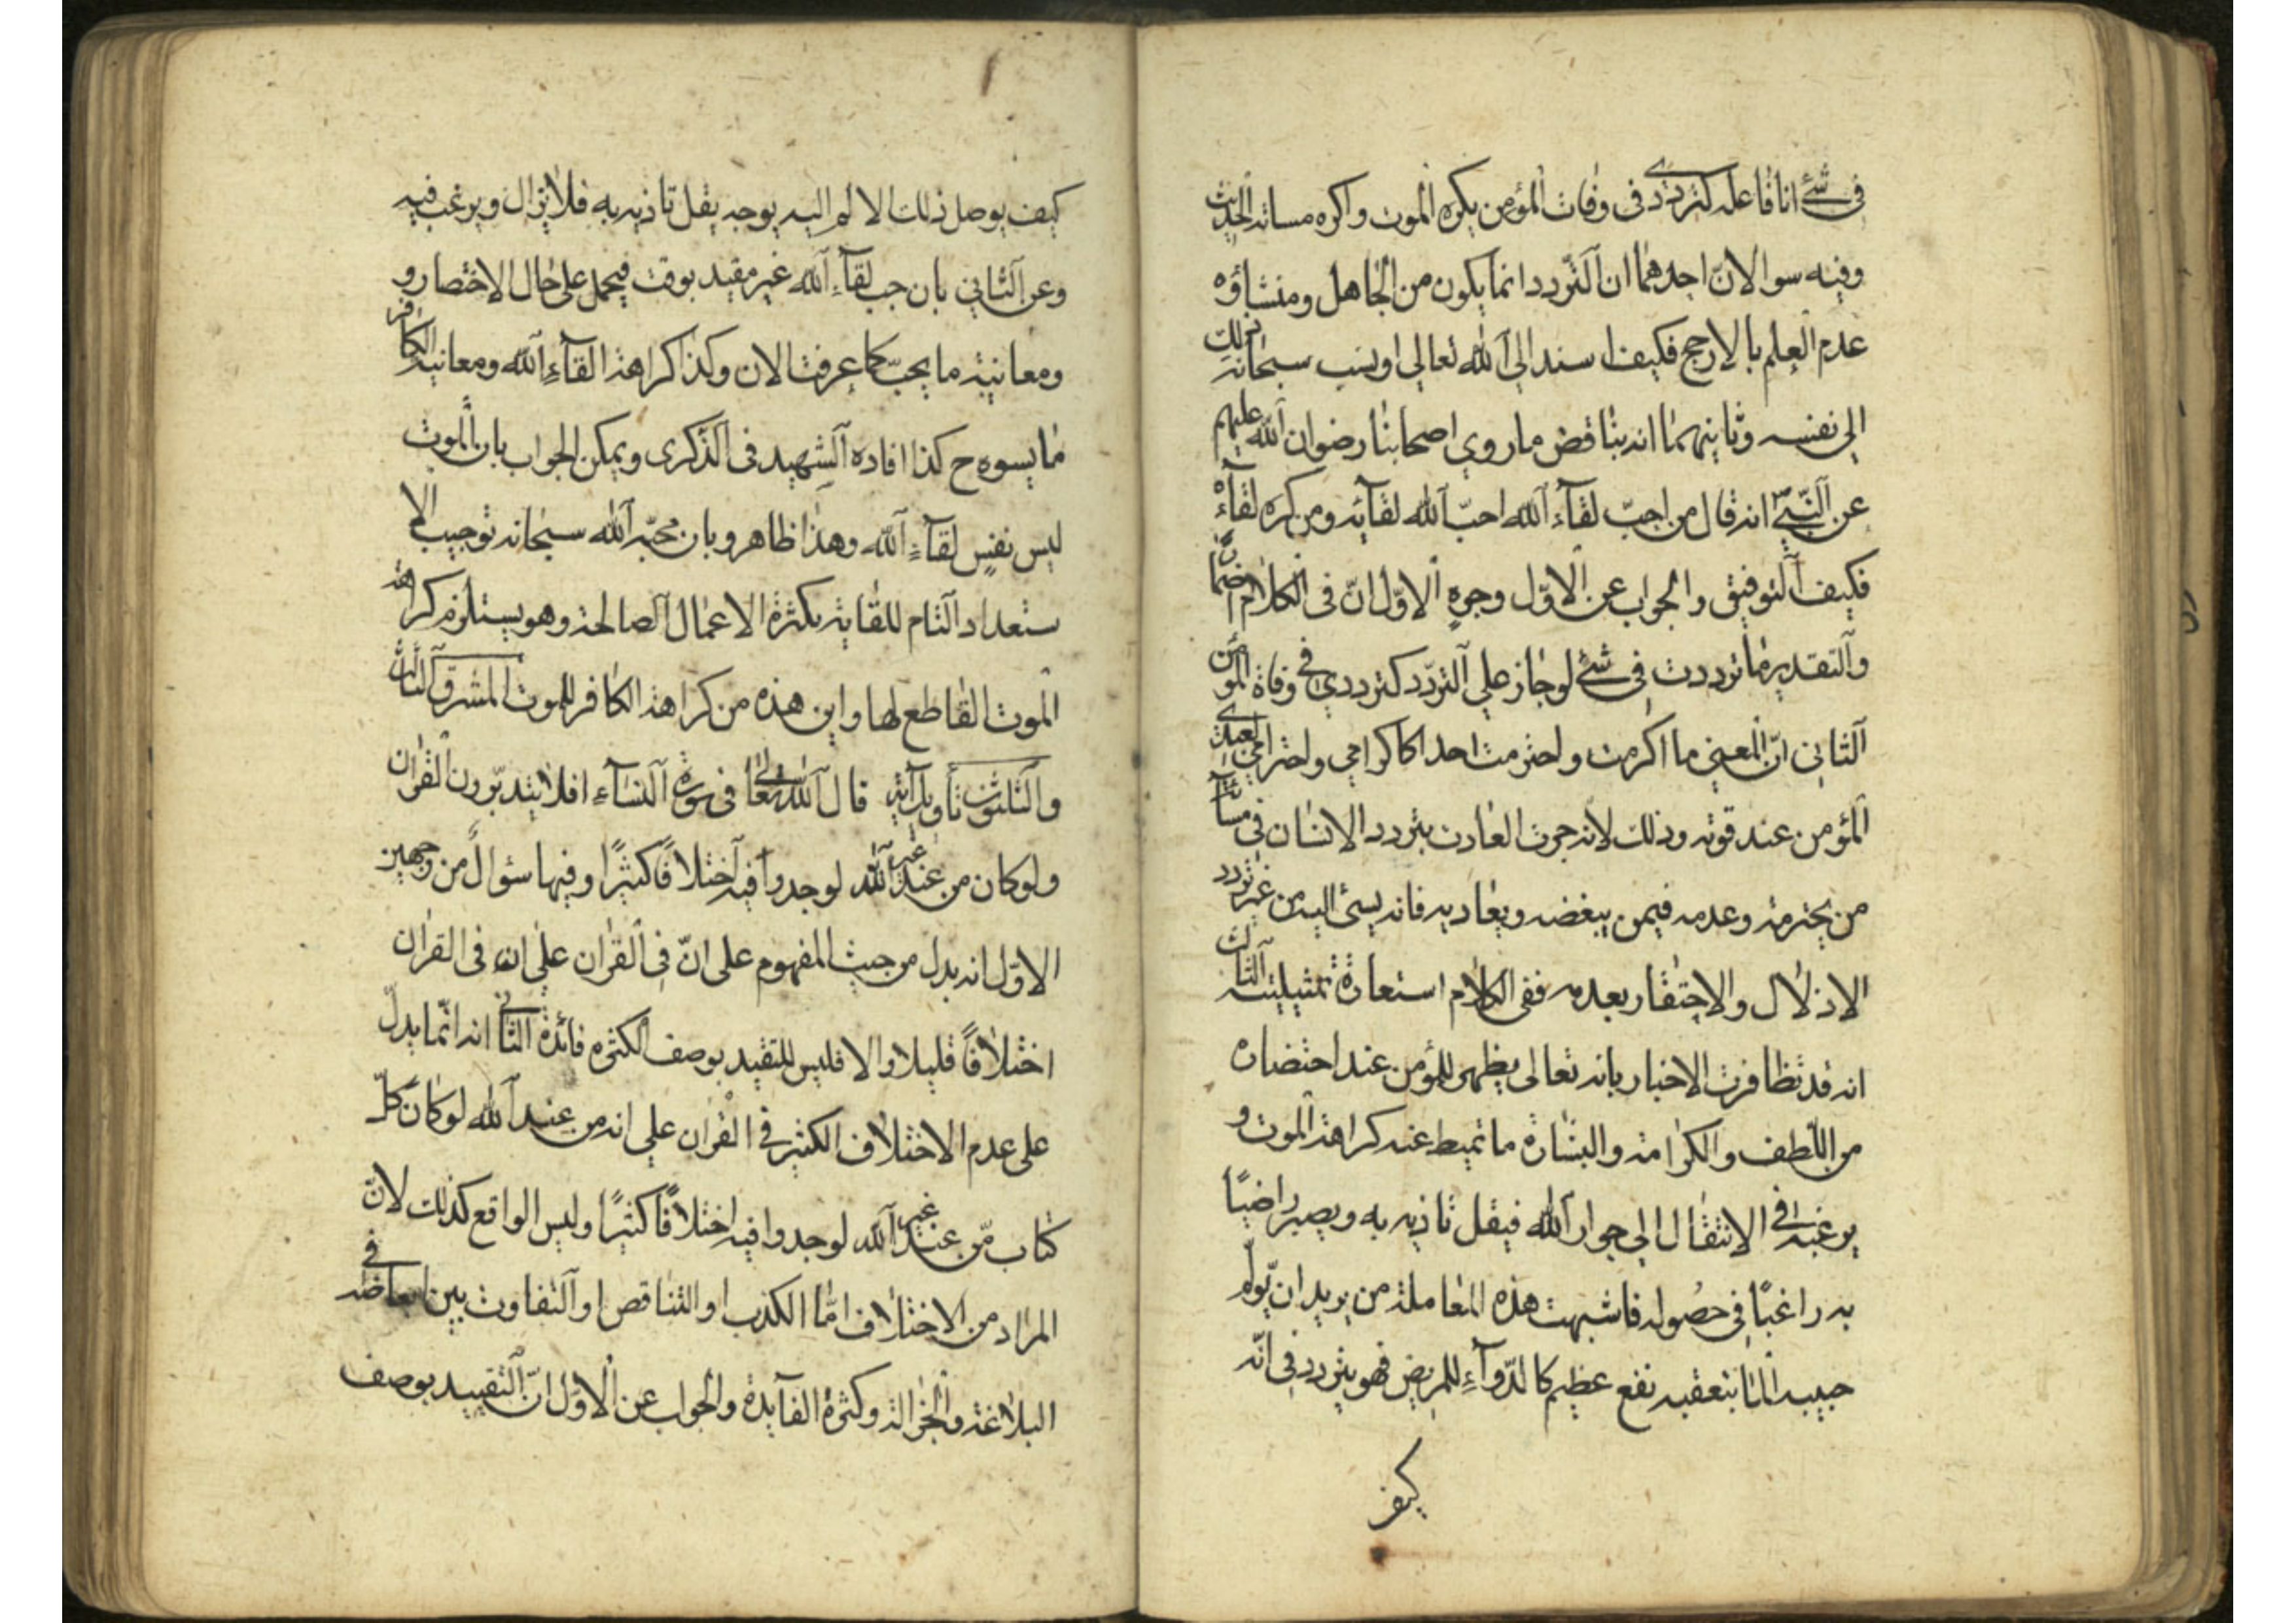 في شئ انا فاعله كترددي في وفات المؤمن يكره الموت واكره مساته الحديث
وفيه سوالان احدهما ان التردد انما يكون من الجاهل ومنشاؤه
عدم العلم بالارجح فكيف اسند الى الله تعالى او ينسب سبحانه ذلك
الى نفسه وثانيهما انه يناقض ما روي اصحابنا رضوان الله عليهم
عن النبي انه قال من احب لقاء الله احب الله لقائه ومن كره لقاءه
فكيف التوفيق والجواب عن الاول وجوه الاول ان في الكلام اضمارا
والتقدير ما ترددت في شئ لو جاز علي التردد كترددي في وفاة المؤمن
الثاني ان المعني ما اكرمت ولا احترمت احدا كاكرامي واحترامي لعبدي
المؤمن عند قوته وذلك لانه جرت العادت بتردد الانسان في مسائة
من يحترمه وعدمه فيمن يبغضه ويعاديه فانه يسئ اليه من غير تردد
الاذلال والاحتقار بعدمه ففي الكلام استعارة تمثيلية الثالث
انه قد تظافرت الاخبار بانه تعالى يظهر للمؤمن عند احتضاره
من اللطف والكرامة والبشارة ما تميط عنه كراهة الموت و
يرغبه في الانتقال الى جوار الله فيقل تاذيه به ويصير راضيا
به راغبا في حصوله فاشبهت هذه المعاملة من يريد ان يولم
حبيبه الما يتعقبه نفع عظيم كالدواء للمريض فهو يتردد في انه
كيف
كيف يوصل ذلك الالم اليه بوجه يقل تاذيه به فلا يزال ويرغب فيه
وعن الثاني بان حب لقاء الله غير مقيد بوقت فيحمل على حال الاختصار و
ومعانيته ما يحب كما عرفت الان وكذا كراهة لقاء الله ومعانية الكافر
ما يسوه ح كذا افاده الشهيد في الذكرى ويمكن الجواب بان الموت
ليس نفس لقاء الله وهذا ظاهر وبان محبه الله سبحانه توجيب الا
ستعداد التام للقايه بكثرة الاعمال الصالحة وهو يستلزم كراهة
الموت القاطع لها واين هذه من كراهة الكافر للموت المشرق الثالث
والثلثون تاويل آية قال الله تعالى في سورة النساء افلا يتدبرون القران
ولو كان من عند غير الله لوجدوا فيه اختلافا كثيرا وفيها سؤال من وجهين
الاول انه يدل من حيث المفهوم على ان في القران على ان في القران
اختلافا قليلا والا فليس للتقيد بوصف الكثره فائدة الثاني انه انما يدل
على عدم الاختلاف الكثير في القران على انه من عند الله لو كان كل
كتاب من عند غير الله لوجدوا فيه اختلافا كثيرا وليس الواقع كذلك لان
المراد من الاختلاف اما الكذب او التناقص او التفاوت بين ابعاضه في
البلاغة والجزالة وكثرة الفايدة والجواب عن الاول ان التقييد بوصف